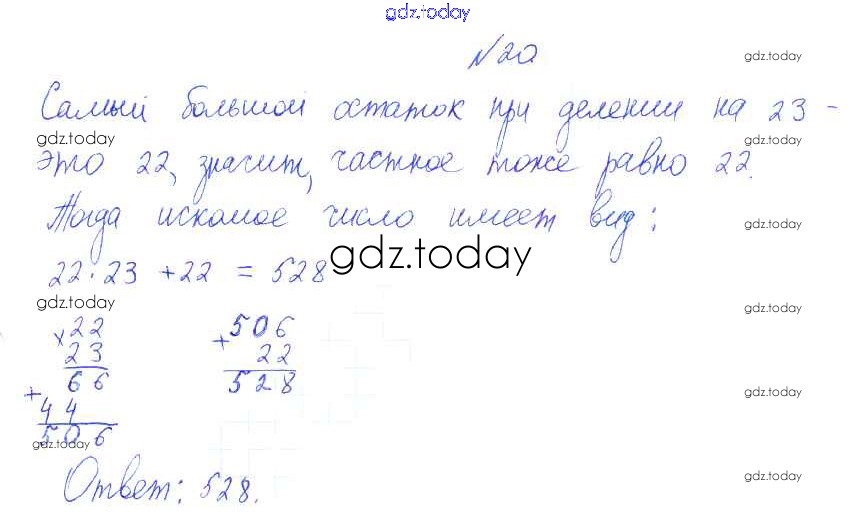 gdz.today
№20
gdz.today
Самый большой остаток при делении на 23 -
gdz.today gdz.today
это 22, значит, частное тоже равно 22.
gdz.today
Тогда искомое число имеет вид:
gdz.today
22·23 +22 = 528
gdz.today
gdz.today gdz.today
×22
23
66
+
44
506
gdz.today
506
+
22
528
gdz.today
gdz.today
Ответ: 528.